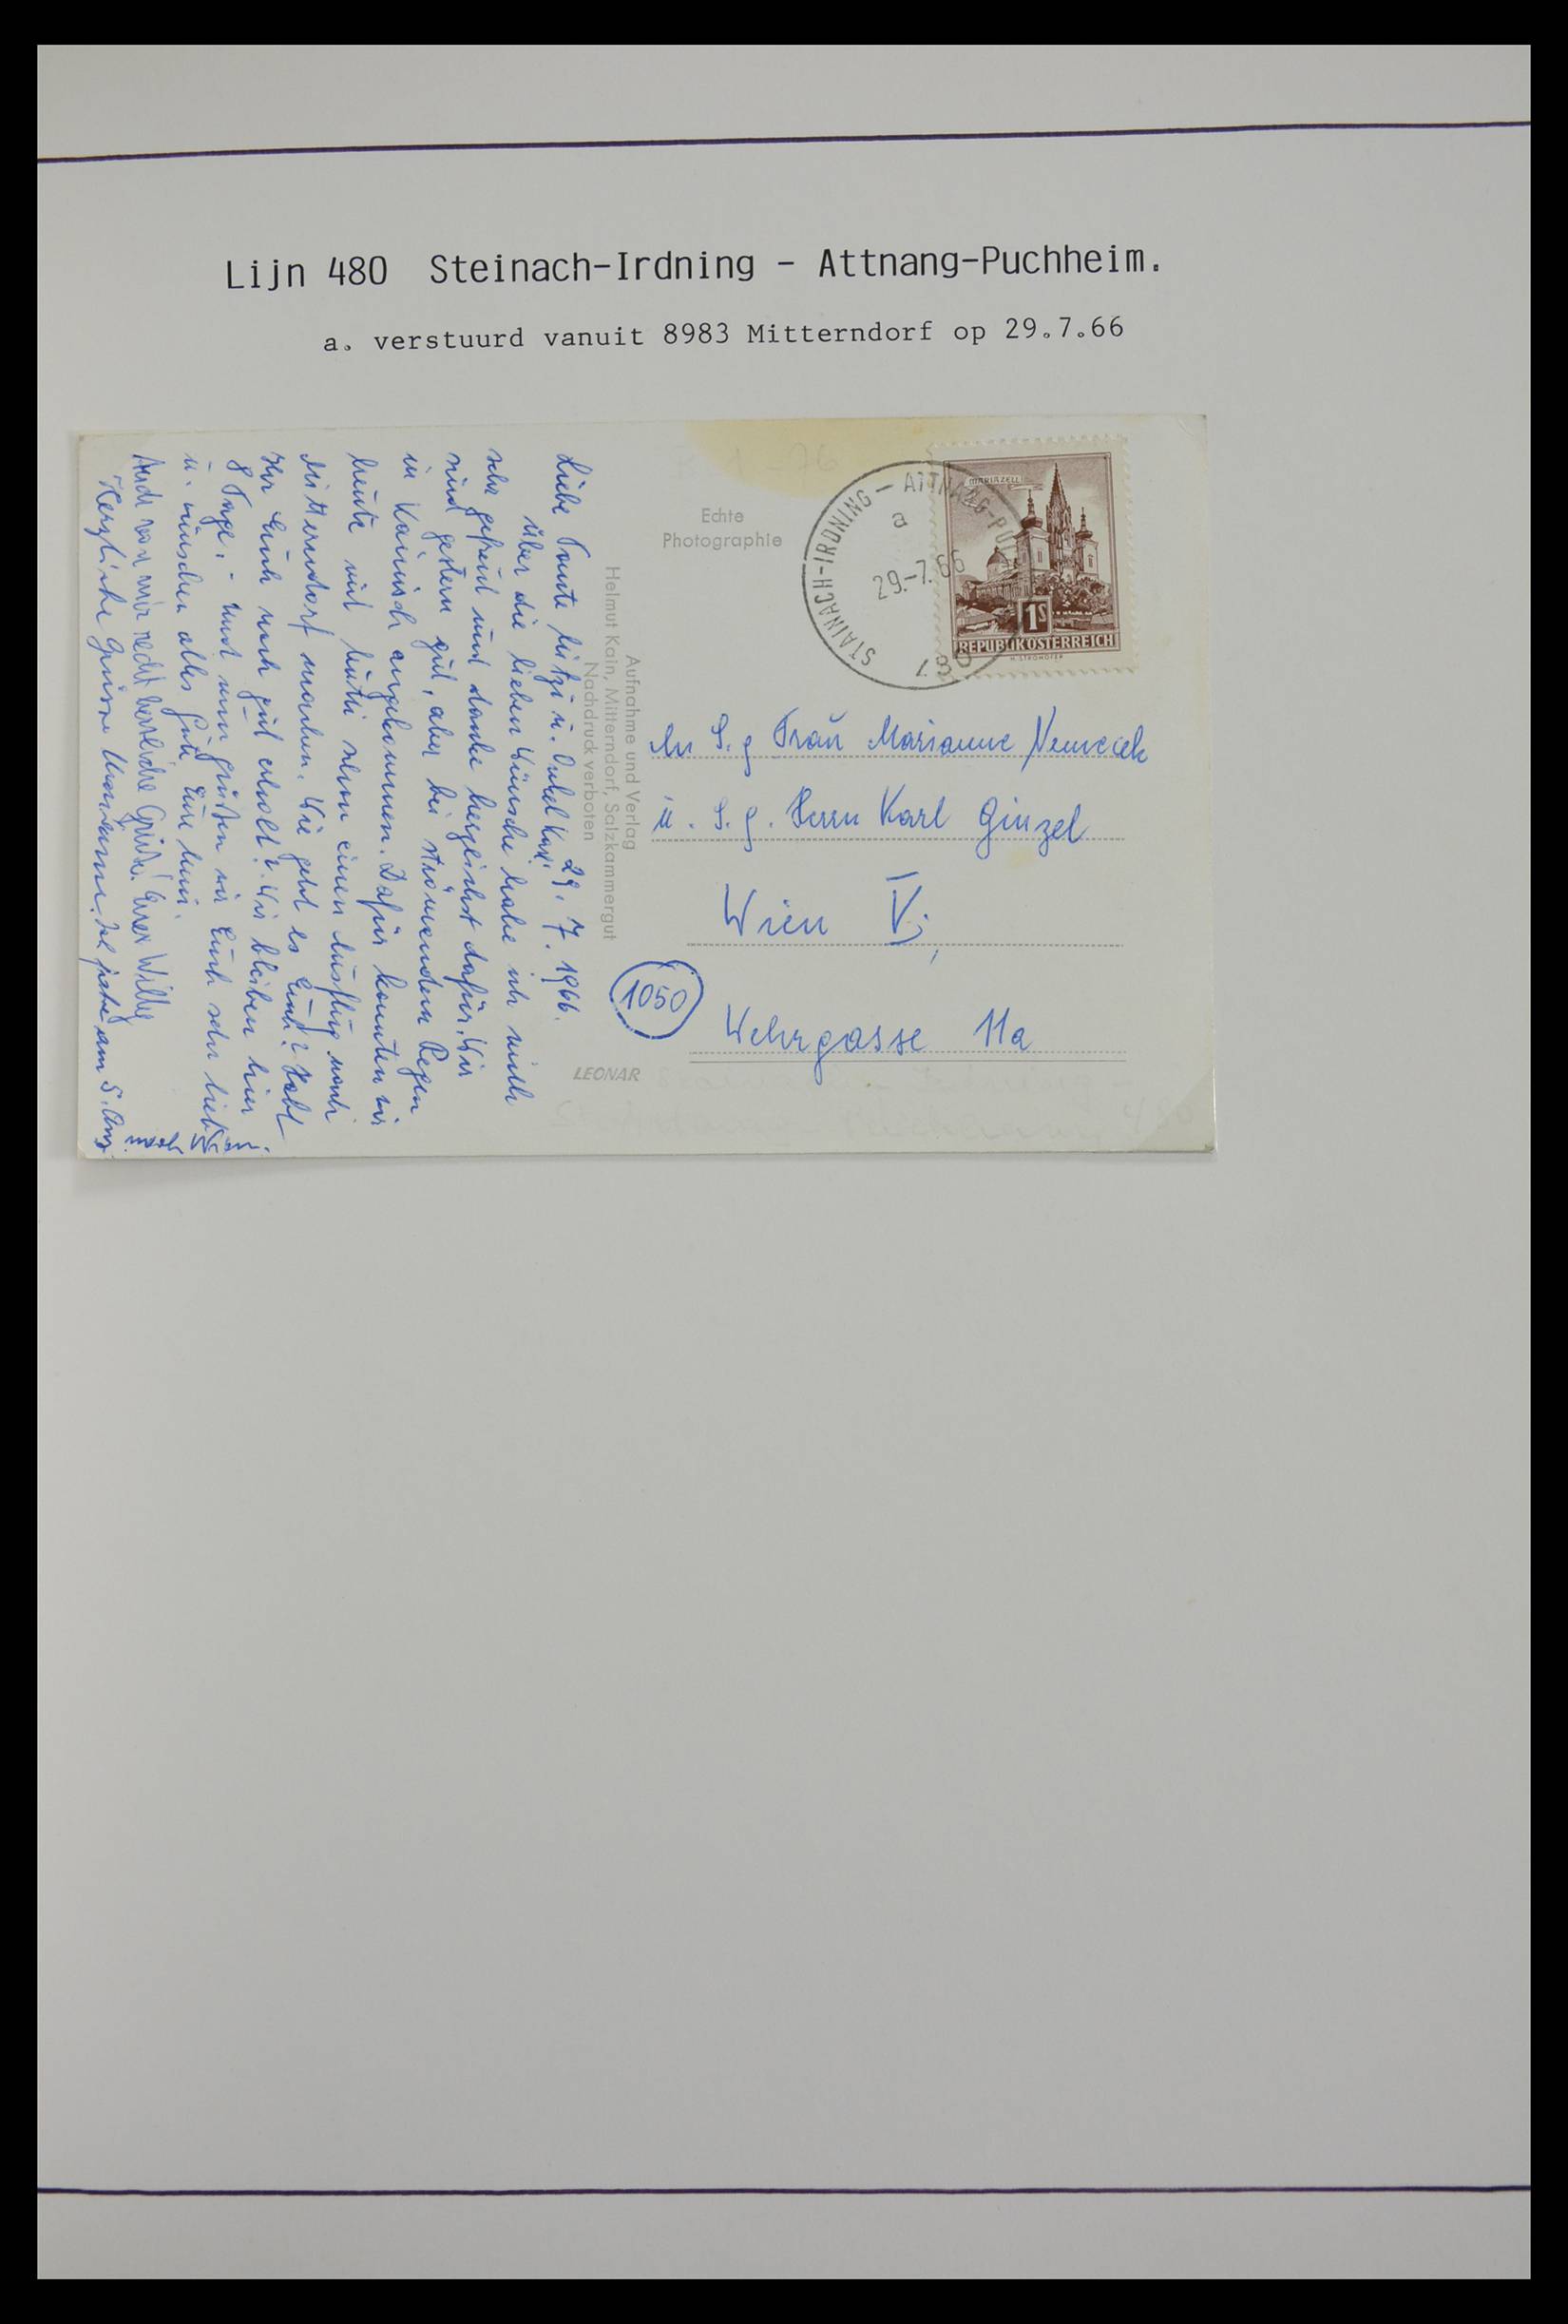 Lijn 480 Steinach-Irdning - Attnang-Puchheim.
a. verstuurd vanuit 8983 Mitterndorf op 29.7.66
Echte
Photographie
STAINACH-IRDNING - ATTNANG-PU
a
29.-7.66
480
MARIAZELL
1S
REPUBLIK ÖSTERREICH
Aufnahme und Verlag
Helmut Kain, Mitterndorf, Salzkammergut
Nachdruck verboten
LEONAR
An S.g Frau Marianne Nemecek
u. S.g. Herrn Karl Ginzel
Wien V.,
1050
Wehrgasse 11a
29. 7. 1966.
Liebe Tante u. Onkel
über die lieben Wünsche habe ich mich
sehr gefreut und danke herzlichst dafür. Wir
sind gestern gut, aber bei strömendem Regen
in Kainisch angekommen. Dafür konnten wir
heute mit Mutti schon einen Ausflug nach
Mitterndorf machen. Wie geht es Euch? Habt
Ihr Euch noch gut erholt? Wir bleiben hier
8 Tage. - Und nun grüßen wir Euch sehr lieb
u. wünschen alles Gute Eure
Auch von mir recht herzliche Grüße. Euer Willy
Herzliche Grüsse am 5. Aug.
nach Wien.